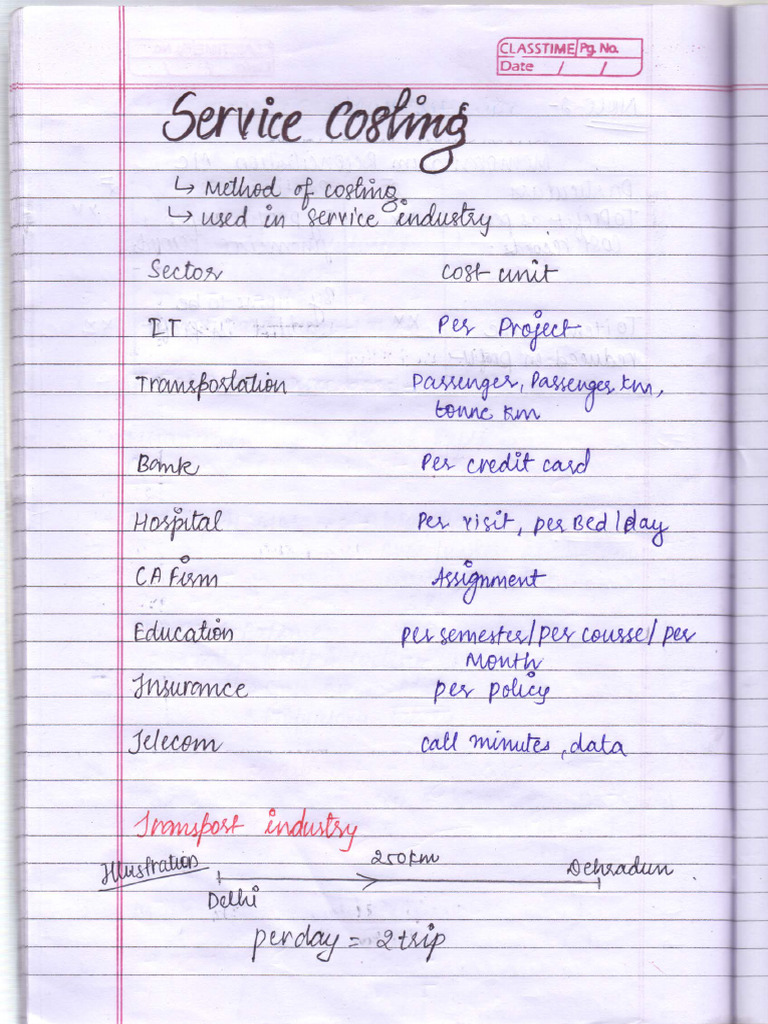 CLASSTIME Pg. No.
Date / /
Service Costing
↳ Method of costing
↳ used in service industry
Sector cost unit
IT Per Project
Transportation Passenger, Passenger km,
tonne km
Bank Per credit card
Hospital Per visit, per Bed/day
CA Firm Assignment
Education per semester/per course/per
Month
Insurance per policy
Telecom call minutes, data
Transport industry
Illustration 250km Dehradun
Delhi
per day = 2 trip